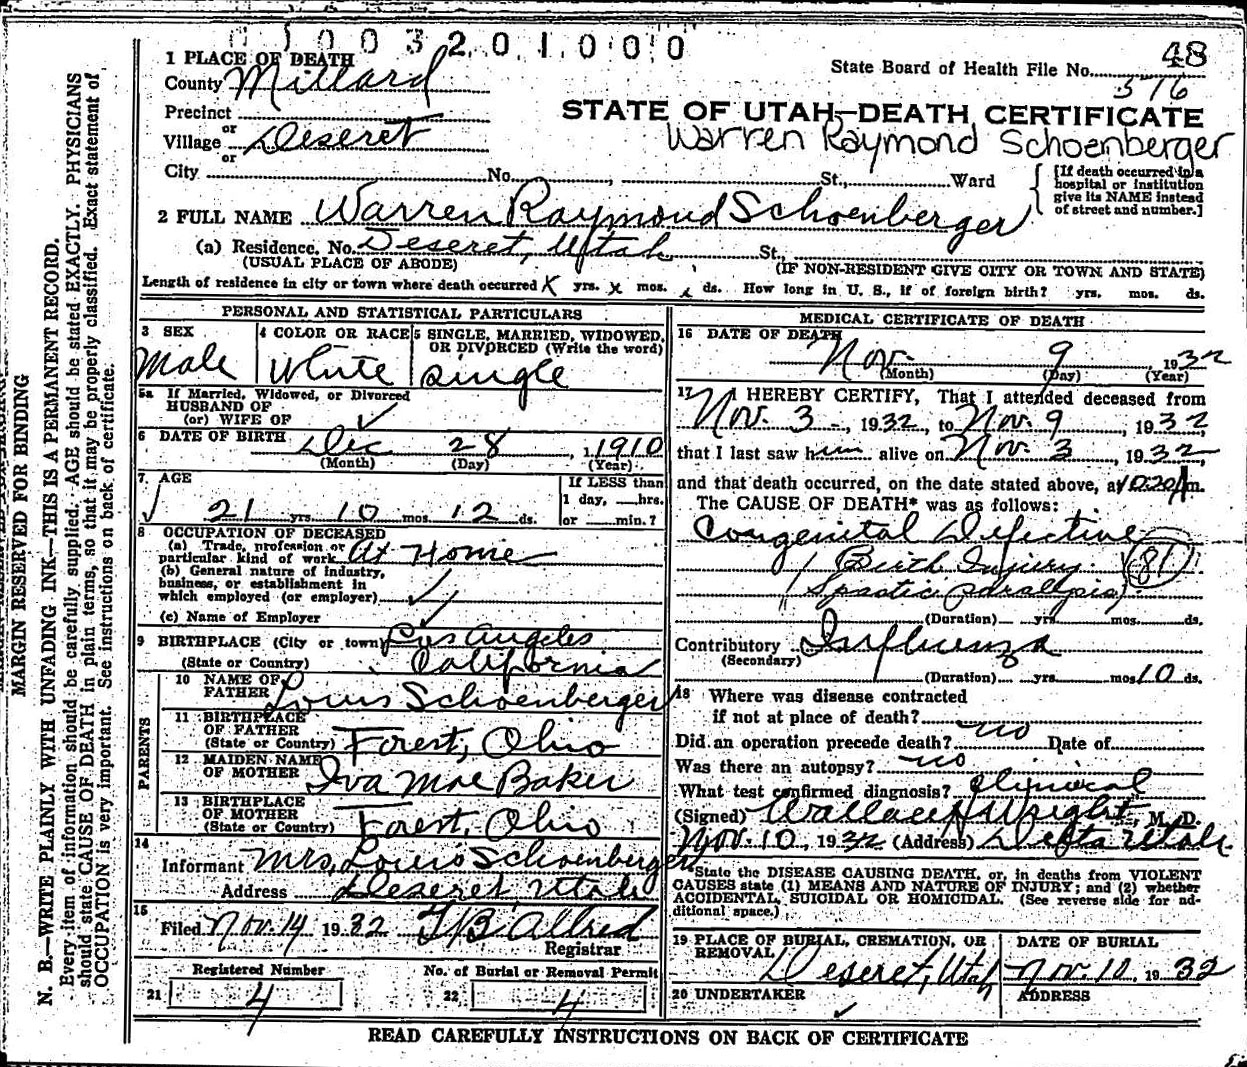 0 1 0 0 3 2 0 1 0 0 0
48
1 PLACE OF DEATH
State Board of Health File No. 576
County Millard
STATE OF UTAH—DEATH CERTIFICATE
Precinct
Warren Raymond Schoenberger
or
Village Deseret
or
City No. , St., Ward
[If death occurred in a
hospital or institution
give its NAME instead
of street and number.]
2 FULL NAME Warren Raymond Schoenberger
(a) Residence. No. Deseret, Utah St.,
(USUAL PLACE OF ABODE) (IF NON-RESIDENT GIVE CITY OR TOWN AND STATE)
Length of residence in city or town where death occurred x yrs. x mos. x ds. How long in U. S., if of foreign birth? yrs. mos. ds.
PERSONAL AND STATISTICAL PARTICULARS
3 SEX
Male
4 COLOR OR RACE
White
5 SINGLE, MARRIED, WIDOWED,
OR DIVORCED (Write the word)
Single
5a If Married, Widowed, or Divorced
HUSBAND OF
(or) WIFE OF
6 DATE OF BIRTH Dec 28, 1910
(Month) (Day) (Year)
7 AGE
21 yrs. 10 mos. 12 ds.
If LESS than
1 day, hrs.
or min.?
8 OCCUPATION OF DECEASED
(a) Trade, profession or
particular kind of work At Home
(b) General nature of industry,
business, or establishment in
which employed (or employer)
(c) Name of Employer
9 BIRTHPLACE (City or town) Los Angeles
(State or Country) California
PARENTS
10 NAME OF
FATHER Louis Schoenberger
11 BIRTHPLACE
OF FATHER
(State or Country) Forest, Ohio
12 MAIDEN NAME
OF MOTHER Iva Mae Baker
13 BIRTHPLACE
OF MOTHER
(State or Country) Forest, Ohio
14
Informant Mrs. Louis Schoenberger
Address Deseret, Utah
15
Filed Nov. 14 1932 Allred
Registrar
Registered Number
21 4
No. of Burial or Removal Permit
22 4
MEDICAL CERTIFICATE OF DEATH
16 DATE OF DEATH
Nov. 9 1932
(Month) (Day) (Year)
17 I HEREBY CERTIFY, That I attended deceased from
Nov. 3, 1932, to Nov. 9, 1932,
that I last saw him alive on Nov. 3, 1932,
and that death occurred, on the date stated above, at 10:20 A m.
The CAUSE OF DEATH* was as follows:
Congenital Defective
( Birth Injury. (81)
(Spastic paralysis)
(Duration) yrs. mos. ds.
Contributory Influenza
(Secondary)
(Duration) yrs. mos. 10 ds.
18 Where was disease contracted
if not at place of death?
Did an operation precede death? no Date of
Was there an autopsy? no
What test confirmed diagnosis? Clinical
(Signed) Wallace H Wright, M. D.
Nov. 10, 1932 (Address) Delta Utah.
*State the DISEASE CAUSING DEATH, or, in deaths from VIOLENT
CAUSES state (1) MEANS AND NATURE OF INJURY; and (2) whether
ACCIDENTAL, SUICIDAL OR HOMICIDAL. (See reverse side for ad-
ditional space.)
19 PLACE OF BURIAL, CREMATION, OR
REMOVAL Deseret, Utah
DATE OF BURIAL
Nov. 10, 1932
20 UNDERTAKER
ADDRESS
READ CAREFULLY INSTRUCTIONS ON BACK OF CERTIFICATE
MARGIN RESERVED FOR BINDING
N. B.—WRITE PLAINLY WITH UNFADING INK—THIS IS A PERMANENT RECORD.
Every item of information should be carefully supplied. AGE should be stated EXACTLY. PHYSICIANS
should state CAUSE OF DEATH in plain terms, so that it may be properly classified. Exact statement of
OCCUPATION is very important. See instructions on back of certificate.